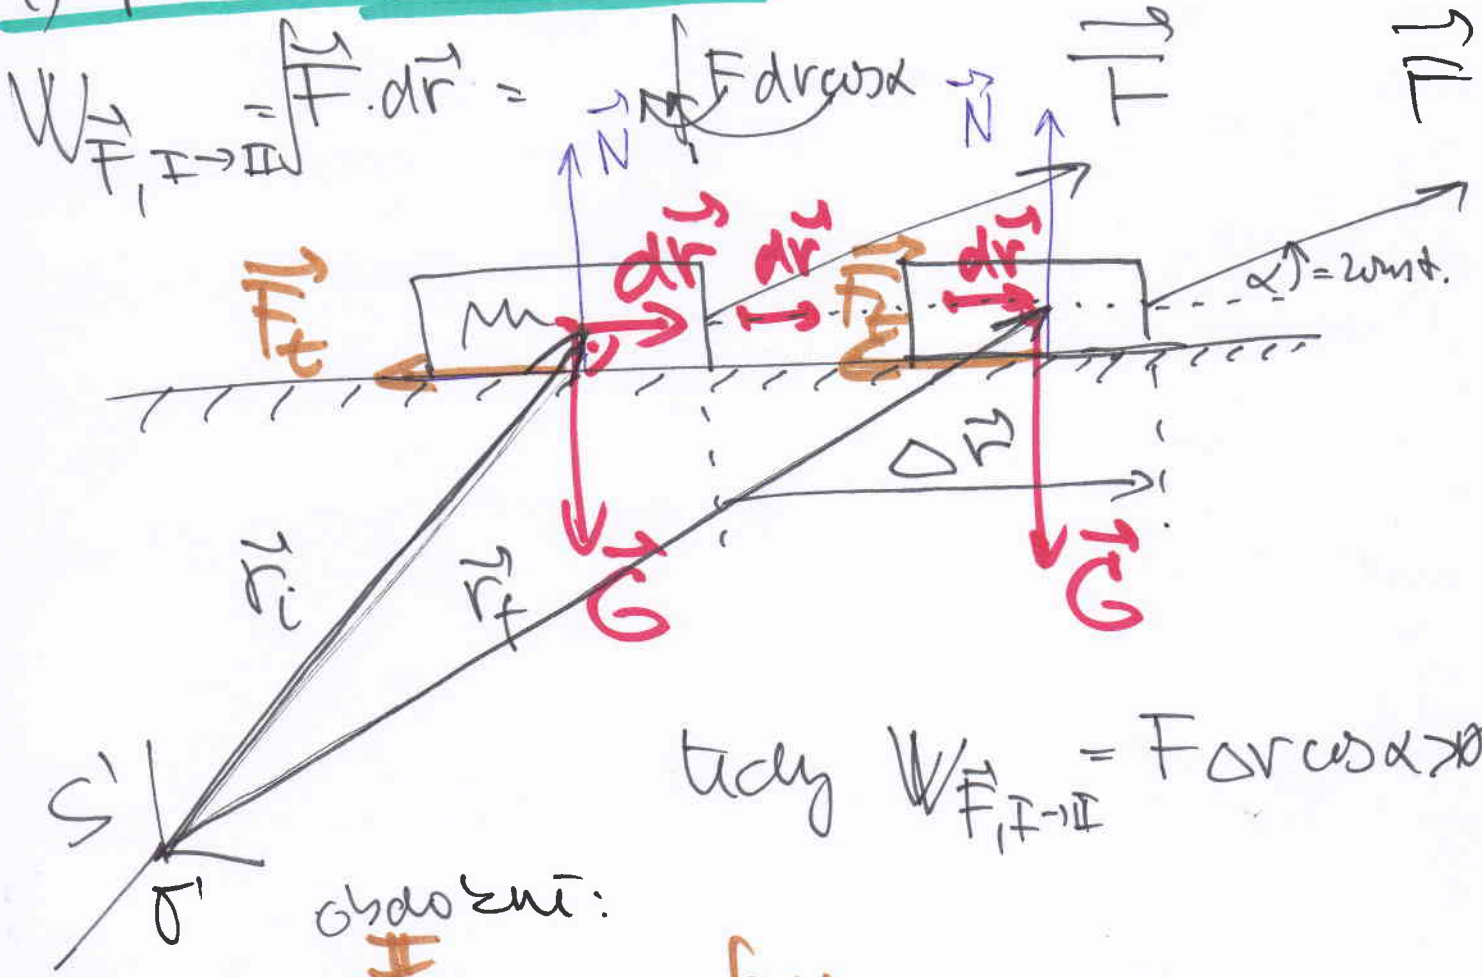 W_{\vec{F}, I→II} = ∫\vec{F}.d\vec{r} = ∫F dr cosα
\vec{F}
\vec{F}
\vec{N}
\vec{N}
d\vec{r}
d\vec{r}
d\vec{r}
\vec{F}_t
m
\vec{F}_t
α = konst.
Δ\vec{r}
\vec{r}_i
\vec{r}_f
\vec{G}
\vec{G}
tedy W_{\vec{F}, I→II} = FΔr cosα >0
S'
O'
obdobně:
II